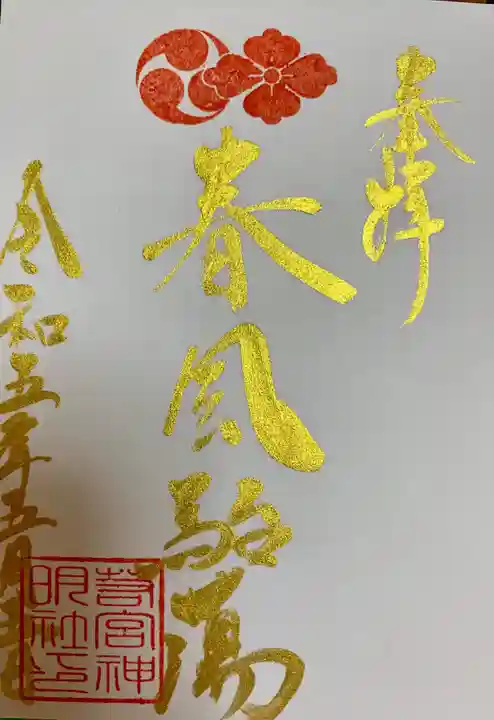 奉拝
春風駘蕩
令和五年五月
萼宮神
明社印